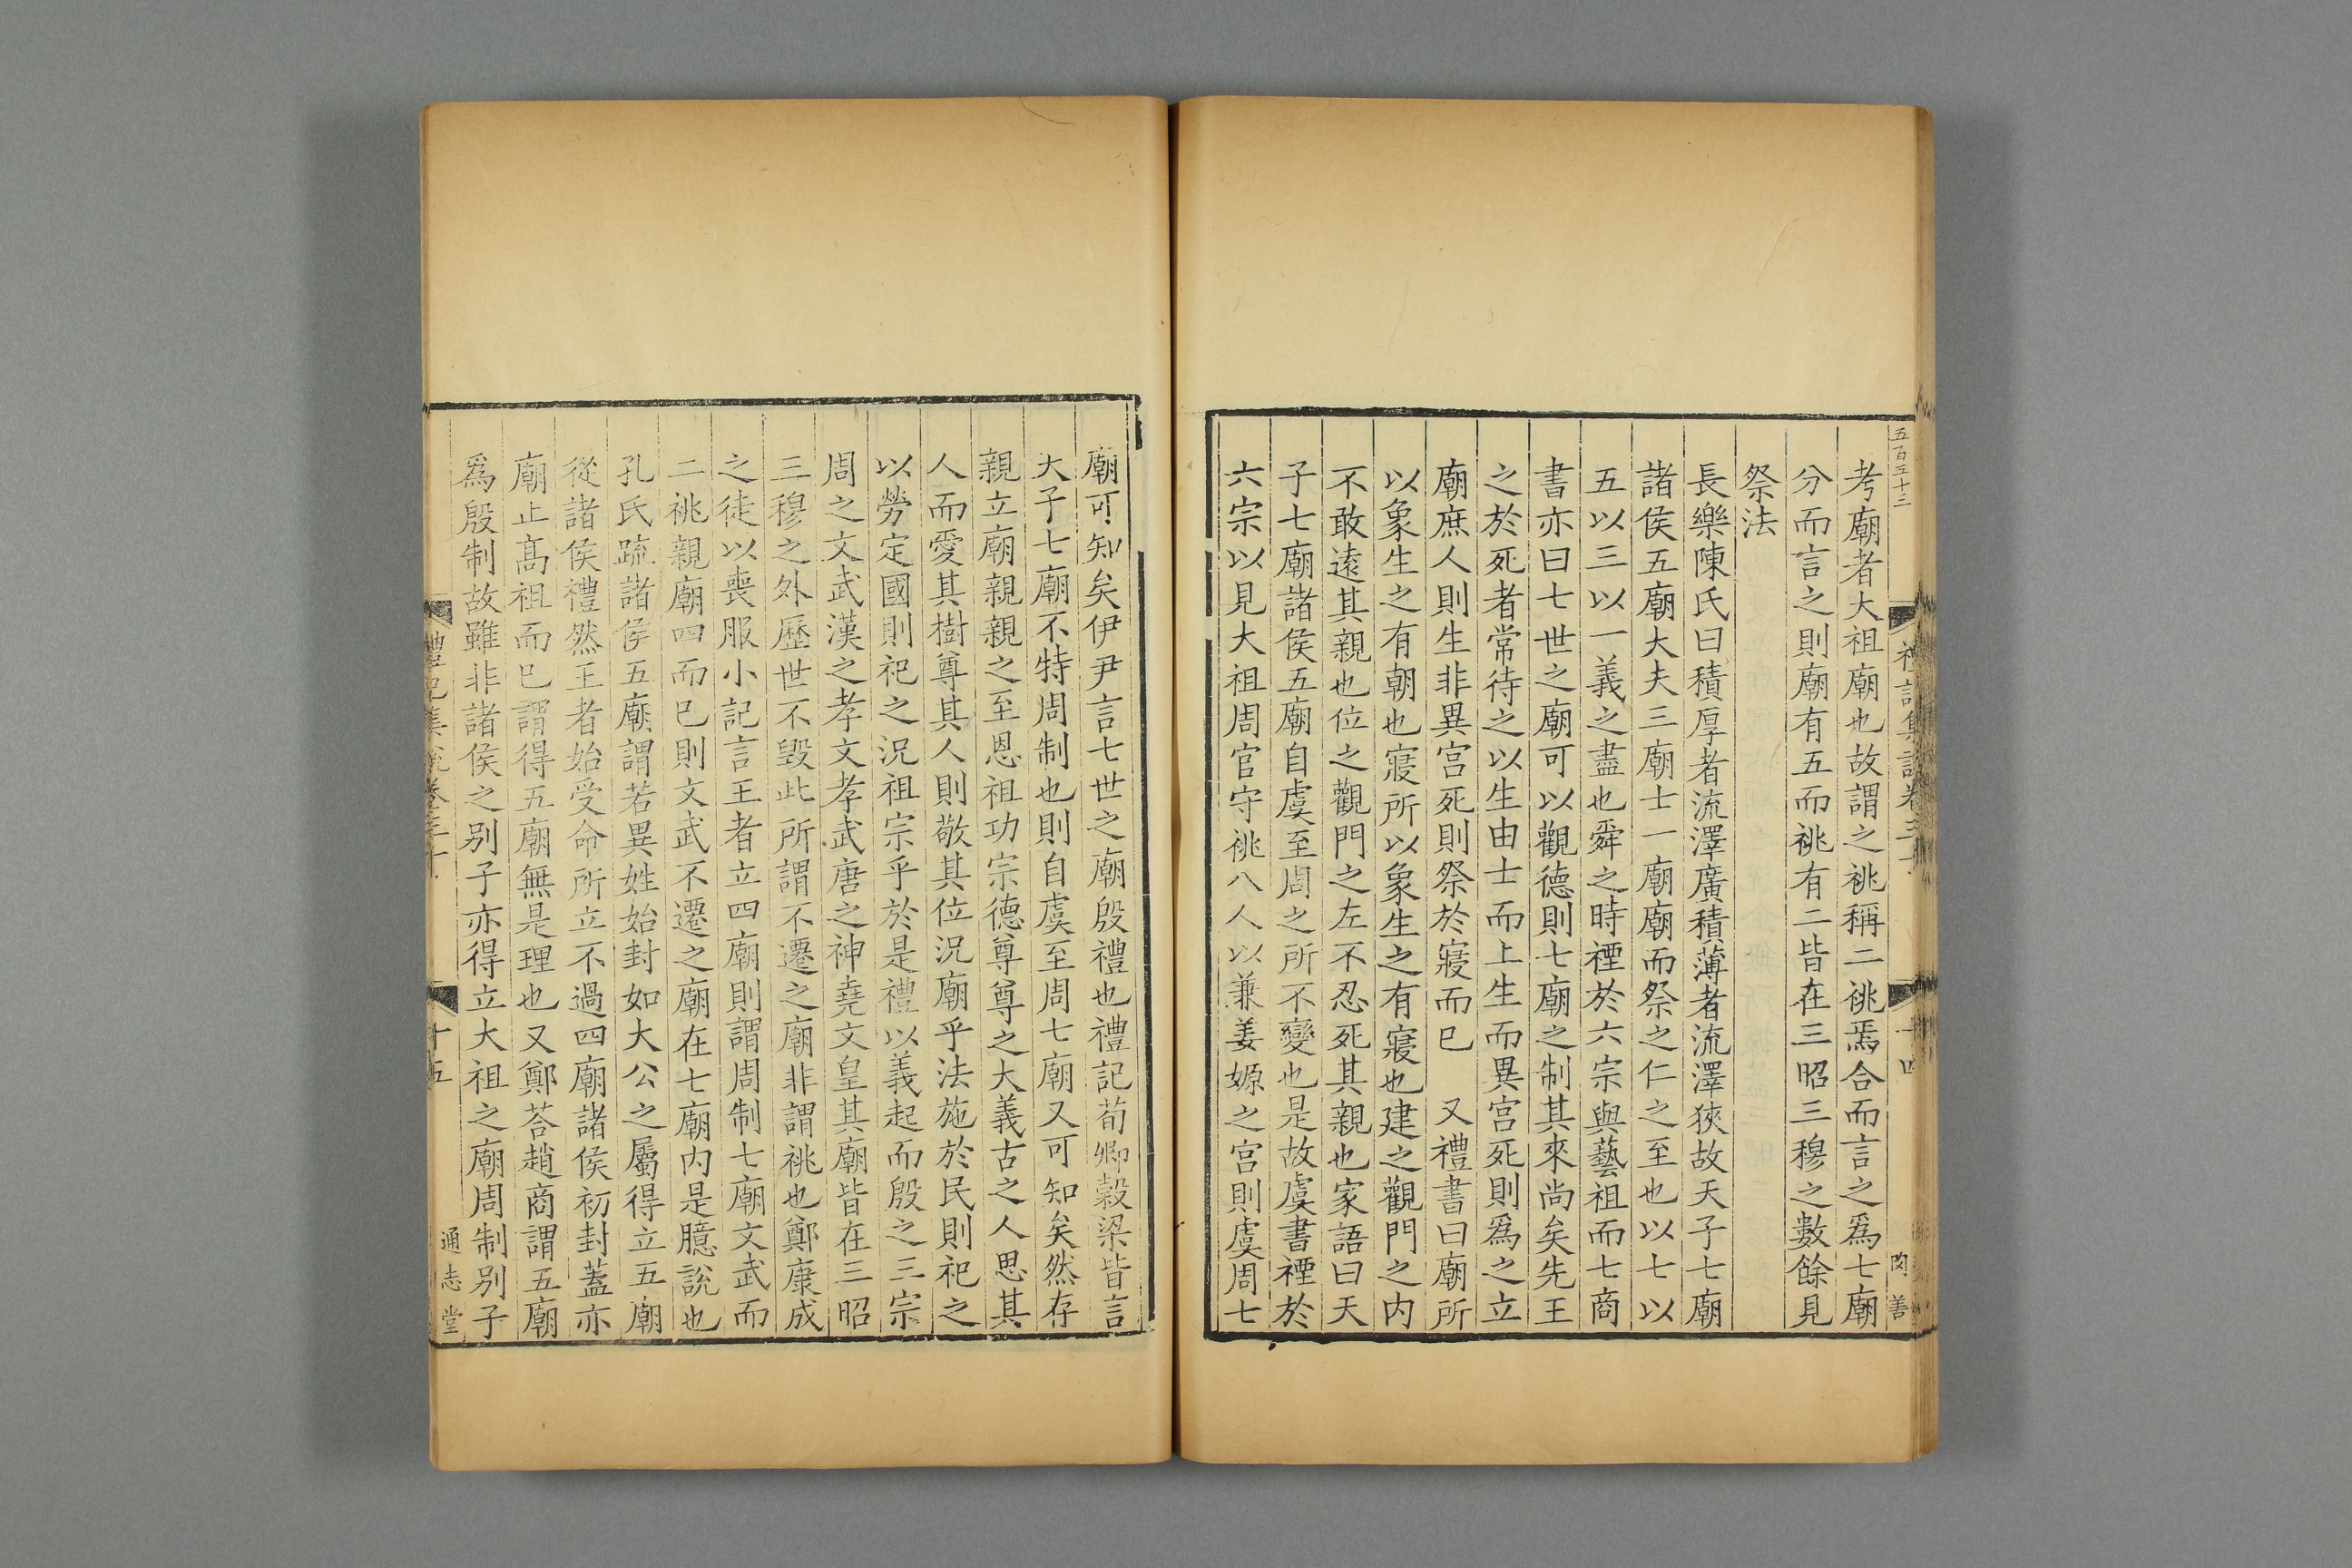 五百五十二
禮記集說卷三十
十四
閃善
考廟者大祖廟也故謂之祧稱二祧焉合而言之爲七廟
分而言之則廟有五而祧有二皆在三昭三穆之數餘見
祭法
長樂陳氏曰積厚者流澤廣積薄者流澤狹故天子七廟
諸侯五廟大夫三廟士一廟廟而祭之仁之至也以七以
五以三以一義之盡也舜之時禋於六宗與藝祖而七商
書亦曰七世之廟可以觀德則七廟之制其來尚矣先王
之於死者常待之以生由士而上生而異宮死則爲之立
廟庶人則生非異宮死則祭於寢而已 又禮書曰廟所
以象生之有朝也寢所以象生之有寢也建之觀門之內
不敢遠其親也位之觀門之左不忍死其親也家語曰天
子七廟諸侯五廟自虞至周之所不變也是故虞書禋於
六宗以見大祖周官守祧八人以兼姜嫄之宮則虞周七
廟可知矣伊尹言七世之廟殷禮也禮記荀卿穀梁皆言
大子七廟不特周制也則自虞至周七廟又可知矣然存
親立廟親親之至恩祖功宗德尊尊之大義古之人思其
人而愛其樹尊其人則敬其位況廟乎法施於民則祀之
以勞定國則祀之況祖宗乎於是禮以義起而殷之三宗
周之文武漢之孝文孝武唐之神堯文皇其廟皆在三昭
三穆之外歷世不毀此所謂不遷之廟非謂祧也鄭康成
之徒以喪服小記言王者立四廟則謂周制七廟文武而
二祧親廟四而已則文武不遷之廟在七廟內是臆說也
孔氏疏諸侯五廟謂若異姓始封如大公之屬得立五廟
從諸侯禮然王者始受命所立不過四廟諸侯初封蓋亦
廟止高祖而已謂得五廟無是理也又鄭荅趙商謂五廟
爲殷制故雖非諸侯之别子亦得立大祖之廟周制别子
禮記集說卷三十
十五
通志堂